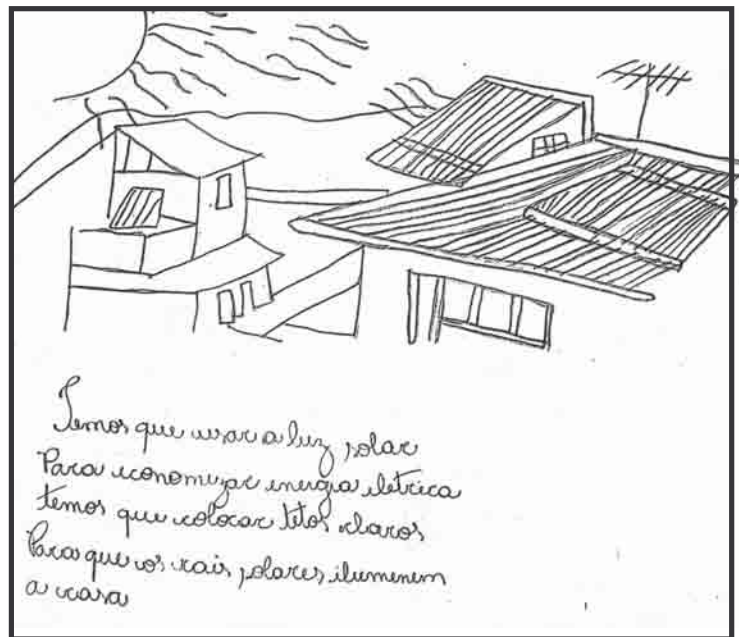 Temos que usar a luz solar
Para economizar energia eletrica
temos que colocar tetos claros
Para que os rais solares ilumenem
a casa